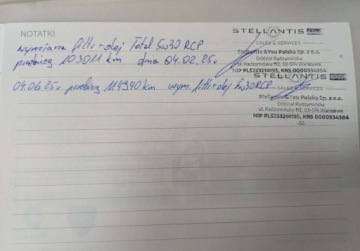 NOTATKI
STELLANTIS &YOU
SALES & SERVICES
wymiana filtr+olej Total 5w30 RCP
Stellantis &You Polska Sp. z o.o.
Oddział Radzymińska
przebieg 103011 km dnia 04.02.25r.
ul. Radzymińska, 03-574 Warszawa
NIP PL5223214195, KRS 0000934804
STELLANTIS &YOU
SALES & SERVICES
04.06.25r. przebieg 114940 km wym. filtr+olej 5w30 RCP
Stellantis &You Polska Sp. z o.o.
Oddział Radzymińska
ul. Radzymińska, 03-574 Warszawa
NIP PL5223214195, KRS 0000934804